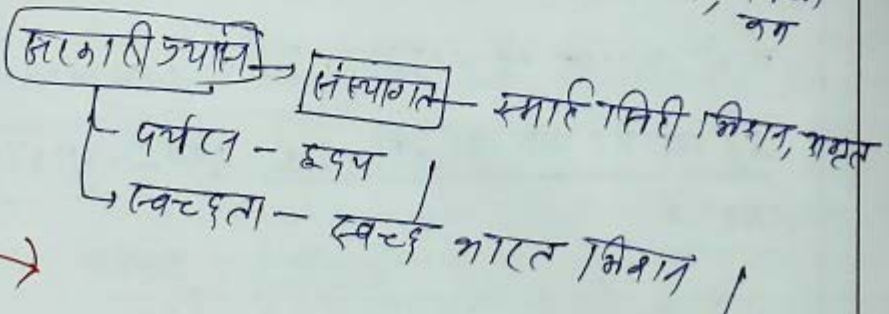 कम
सरकारी प्रयास → संस्थागत - स्मार्ट सिटी मिशन, अमृत
पर्यटन - हृदय
→ स्वच्छता - स्वच्छ भारत मिशन